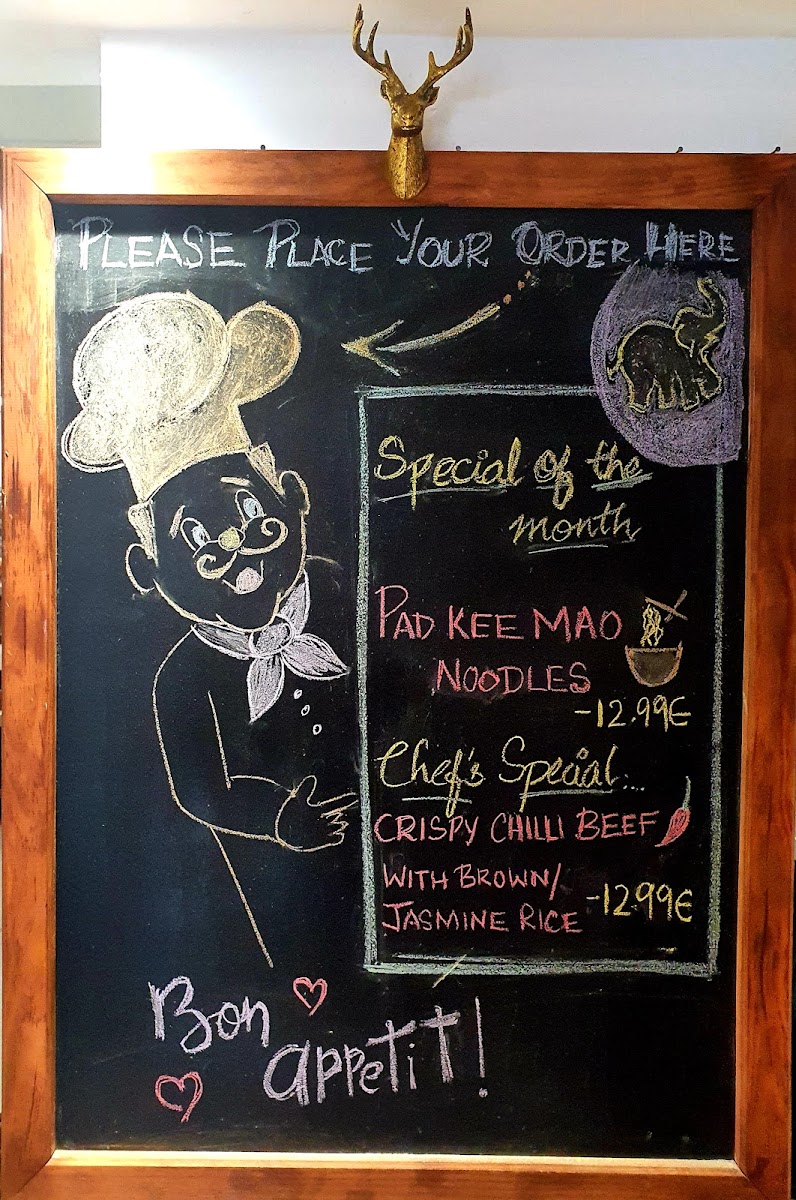 PLEASE PLACE YOUR ORDER HERE
Special of the
month
PAD KEE MAO
NOODLES
-12.99€
Chef's Special...
CRISPY CHILLI BEEF
WITH BROWN/
JASMINE RICE -12.99€
Bon
appetit!